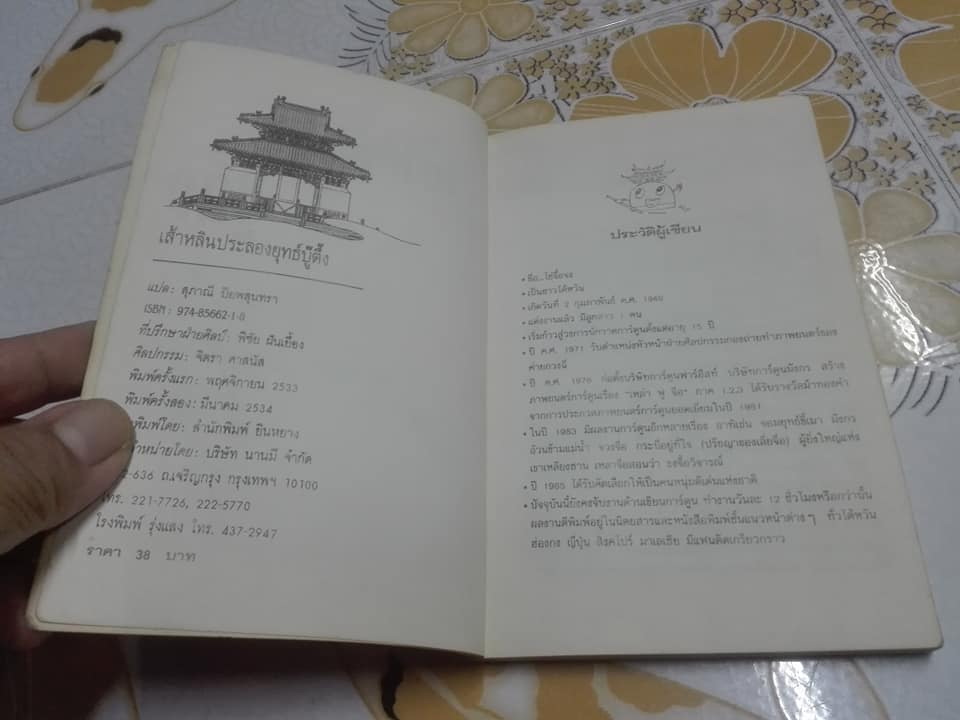 เส้าหลินประลองยุทธ์บู๊ตึ๊ง
แปล: สุภาณี ปิยพสุนทรา
ISBN: 974-85662-1-8
ที่ปรึกษาฝ่ายศิลป์: พิชัย ผันเยื้อง
ศิลปกรรม: จิตรา ศาสนัส
พิมพ์ครั้งแรก: พฤศจิกายน 2533
พิมพ์ครั้งสอง: มีนาคม 2534
พิมพ์โดย: สำนักพิมพ์ ยินหยาง
จำหน่ายโดย: บริษัท นานมี จำกัด
2-636 ถ.เจริญกรุง กรุงเทพฯ 10100
โทร. 221-7726, 222-5770
โรงพิมพ์ รุ่งแสง โทร. 437-2947
ราคา 38 บาท
ประวัติผู้เขียน
• ชื่อ...ไช่จื้อจง
• เป็นชาวไต้หวัน
• เกิดวันที่ 2 กุมภาพันธ์ ค.ศ. 1948
• แต่งงานแล้ว มีลูกสาว 1 คน
• เริ่มก้าวสู่วงการนักวาดการ์ตูนตั้งแต่อายุ 15 ปี
• ปี ค.ศ. 1971 รับตำแหน่งหัวหน้าฝ่ายศิลปกรรมกองถ่ายทำภาพยนตร์ของ
ค่ายกวงฉี่
• ปี ค.ศ. 1976 ก่อตั้งบริษัทการ์ตูนฟาร์อีสท์ บริษัทการ์ตูนมังกร สร้าง
ภาพยนตร์การ์ตูนเรื่อง "เหล่า ฟู จื่อ" ภาค 1,2,3 ได้รับรางวัลม้าทองคำ
จากการประกวดภาพยนตร์การ์ตูนยอดเยี่ยมในปี 1981
• ในปี 1983 มีผลงานการ์ตูนอีกหลายเรื่อง อาทิเช่น จอมยุทธ์ขี้เมา มังกร
อ้วนข้ามแม่น้ำ จวงจื่อ กระบี่อยู่ที่ใจ (ปรัชญาของเลี่ยจื่อ) ผู้ยิ่งใหญ่แห่ง
เขาเหลียงซาน เหลาจื่อสอนว่า ขงจื่อวิจารณ์
• ปี 1985 ได้รับคัดเลือกให้เป็นคนหนุ่มดีเด่นแห่งชาติ
• ปัจจุบันนี้ยังคงจับงานด้านเขียนการ์ตูน ทำงานวันละ 12 ชั่วโมงหรือกว่านั้น
ผลงานตีพิมพ์อยู่ในนิตยสารและหนังสือพิมพ์ชั้นแนวหน้าต่างๆ ทั่วไต้หวัน
ฮ่องกง ญี่ปุ่น สิงคโปร์ มาเลเซีย มีแฟนติดเกรียวกราว